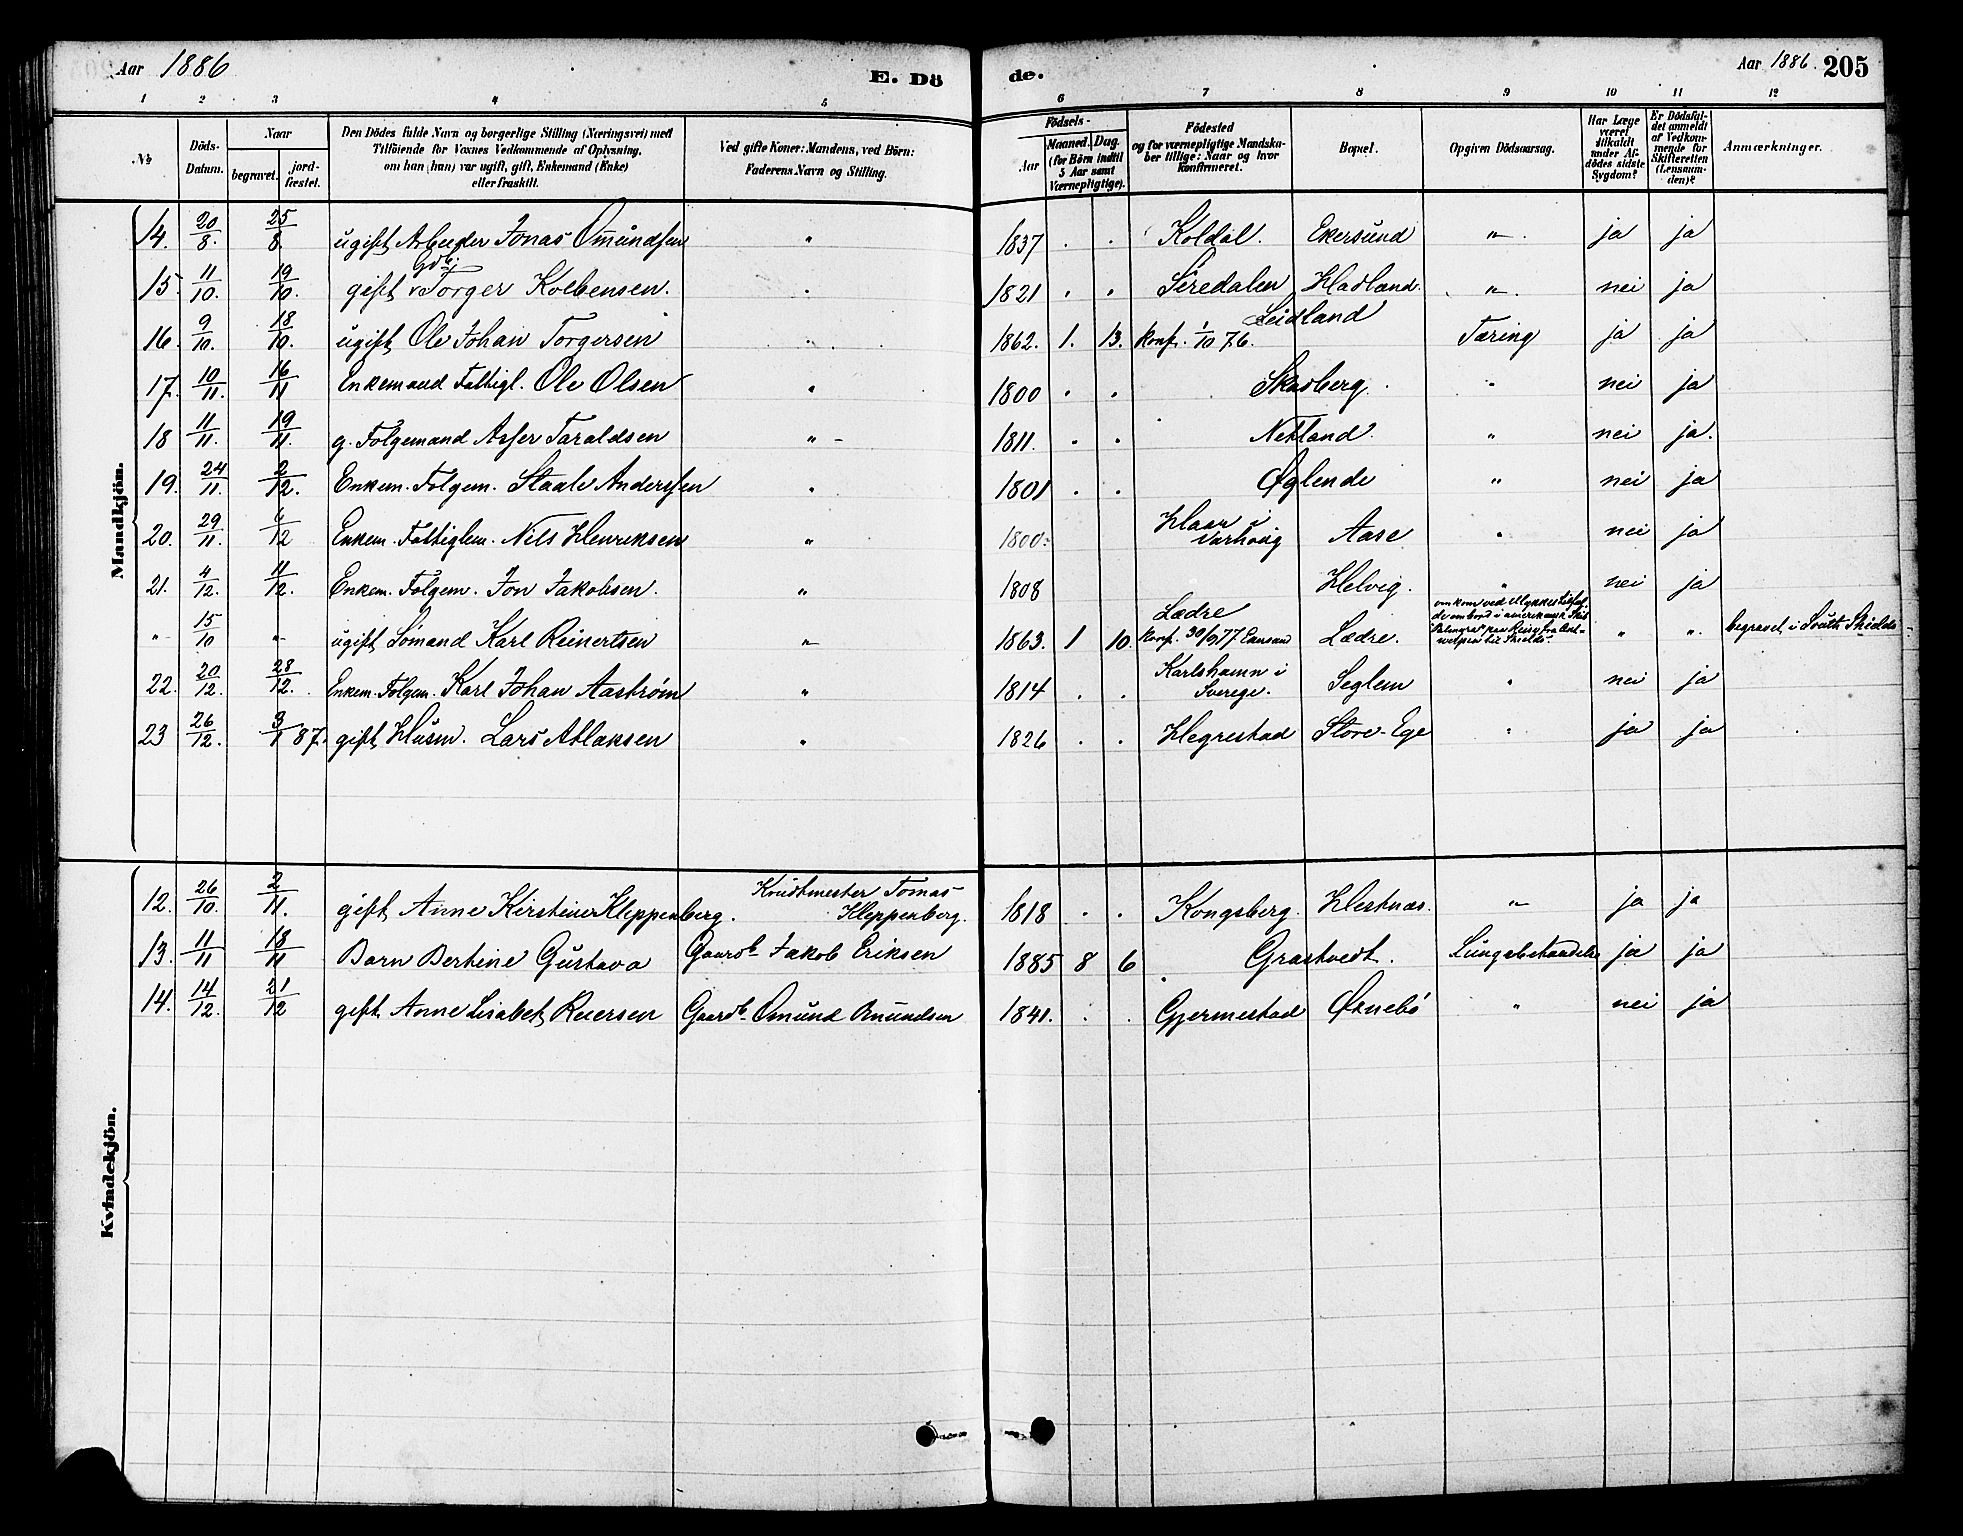 Aar 1886
E. Dö
de.
Aar 1886. 205
1 2 3 4 5 6 7 8 9 10 11 12
№
Döds-
Datum.
Naar
begravet.
jord-
fæstet.
Den Dödes fulde Navn og borgerlige Stilling (Næringsvei) med
Tilföiende for Voxnes Vedkommende af Oplysning,
om han (hun) var ugift, gift, Enkemand (Enke)
eller fraskilt.
Ved gifte Koner: Mandens, ved Börn:
Faderens Navn og Stilling.
Födsels-
Aar
Maaned. Dag.
(for Börn indtil
5 Aar samt
Værnepligtige).
Födested
og for værnepligtige Mandska-
ber tillige: Naar og hvor
konfirmeret.
Bopæl.
Opgiven Dödsaarsag.
Har Læge
været
tilkaldt
under Af-
dödes sidste
Sygdom?
Er Dödsfal-
det anmeldt
af Vedkom-
mende for
Skifteretten
(Lensman-
den)?
Anmærkninger.
Mandkjön.
14. 20/8. 25/8. ugift Arbeider Jonas Omundsen " 1837 . . Koldal. Ekersund " ja ja
15. 11/10. 19/10. gift Gdb. Torger Kolbensen. . 1821 . . Siredalen Hadland. " nei ja
16. 9/10. 18/10. ugift Ole Johan Torgersen " 1862. 1. 13. konf. 1/10 76. Leidland Tæring ja ja
17. 10/11. 16/11 Enkemand Fattigl. Ole Olsen " 1800 . . Skadberg. " nei ja
18 11/11. 19/11. g. Folgemand Asser Taraldsen " 1811. . . Netland. " nei ja.
19. 24/11. 2/12. Enkem. Folgem. Staale Anderssen " 1801 . . Øglende " nei ja
20. 29/11. 6/12 Enkem. Fattiglem. Nils Henriksen " 1800. Haar i Varhoug Aase " nei ja
21. 4/12. 11/12. Enkem. Folgem. Jon Jakobsen. " 1808 Helvig. " nei ja
" 15/10 " ugift Sömand Karl Reinertsen " 1863. 1 10. Lædre konf. 30/9 77 Lædre. omkom ved Ulykkestilfæl-
de ombord i amerikansk Skib
paa Reise fra Ant-
werpen til Shields. " " begravet i South Shields
22. 20/12. 28/12. Enkem. Folgem. Karl Johan Aaström " 1814 . . Karlshamn i
Sverege. Seglem " nei ja
23 26/12. 3/1 87. gift Husm. Lars Atlaksen " 1826 . . Hegrestad Store-Ege " ja ja
Kvindekjön.
12. 26/10. 2/11. gift Anne Kirstine Kleppenberg. Krudtmester Tomas
Kleppenberg. 1818 . . Kongsberg. Hestnæs. " ja ja
13. 11/11 18/11 Barn Bertine Gustava Gaardb. Jakob Eriksen 1885 8 6 Grastvedt. Lungebetændelse ja ja
14. 14/12. 21/12 gift Anne Lisabet Reiersen Gaardb. Omund Omundsen 1841. . . Gjermestad Øsnebö " nei ja